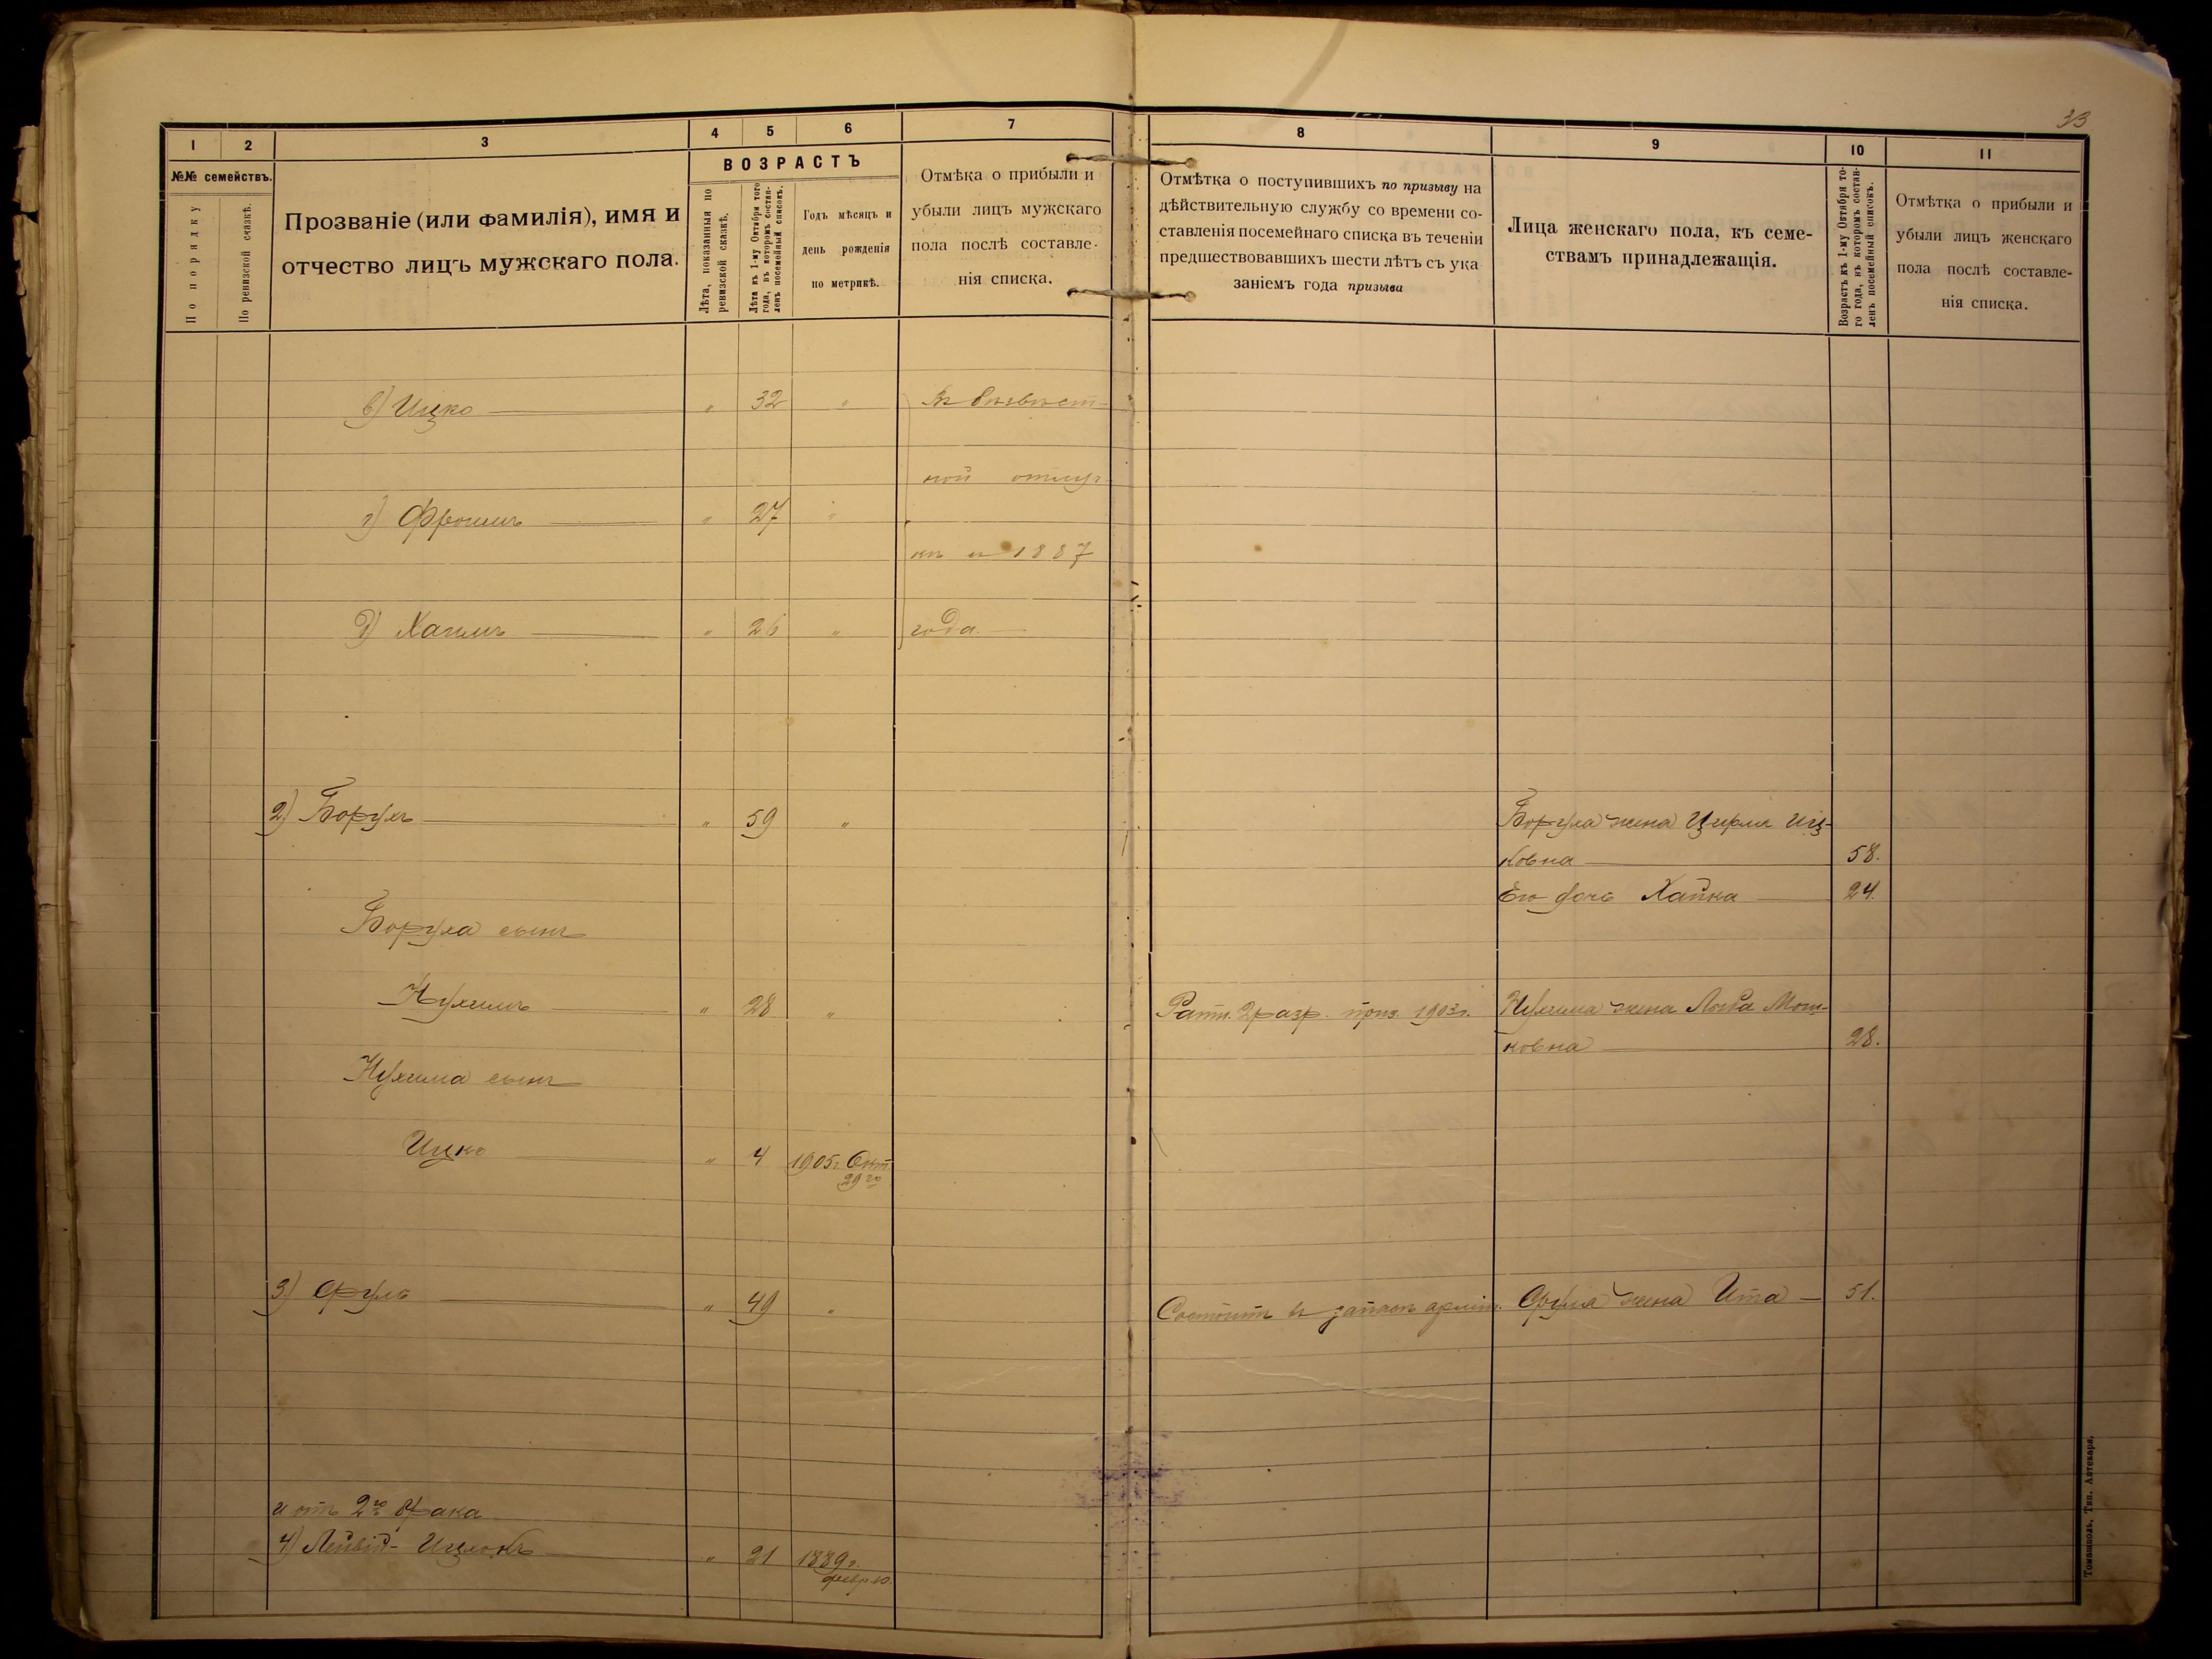 33
1
2
3
4
5
6
7
№№ семействъ.
По порядку
По ревизской сказкѣ.
Прозваніе (или фамилія), имя и
отчество лицъ мужскаго пола.
ВОЗРАСТЪ
Лѣта, показанныя по
ревизской сказкѣ.
Лѣта къ 1-му Октября того
года, въ которомъ состав-
ленъ посемейный списокъ.
Годъ мѣсяцъ и
день рожденія
по метрикѣ.
Отмѣка о прибыли и
убыли лицъ мужскаго
пола послѣ составле-
нія списка.
в) Ицко " 32 " Въ безвѣст-
ной отлуч-
г) Фроимъ " 27 "
кѣ съ 1887
д) Хаимъ " 26 " года.
2) Борухъ " 59 "
Боруха сынъ
Нухимъ " 28 "
Нухима сынъ
Ицко " 4 1905г. Окт.
29го
3) Сруль " 49 "
и отъ 2го брака
4) Лейвid- Ицхокъ " 21 1889г.
февр. 10.
8
9
10
11
Отмѣтка о поступившихъ по призыву на
дѣйствительную службу со времени со-
ставленія посемейнаго списка въ теченіи
предшествовавшихъ шести лѣтъ съ ука
заніемъ года призыва
Лица женскаго пола, къ семе-
ствамъ принадлежащія.
Возрастъ къ 1-му Октября то-
го года, въ которомъ состав-
ленъ посемейный списокъ.
Отмѣтка о прибыли и
убыли лицъ женскаго
пола послѣ составле-
нія списка.
Боруха жена Цирля Иц-
ковна 58.
Его дочь Хайка 24.
Ратн. 2 разр. приз. 1903г. Нухима жена Мош-
ковна 28.
Состоитъ въ запасѣ арміи. Сруля жена Ита 51.
Томашполь, Тип. Аптекаря.